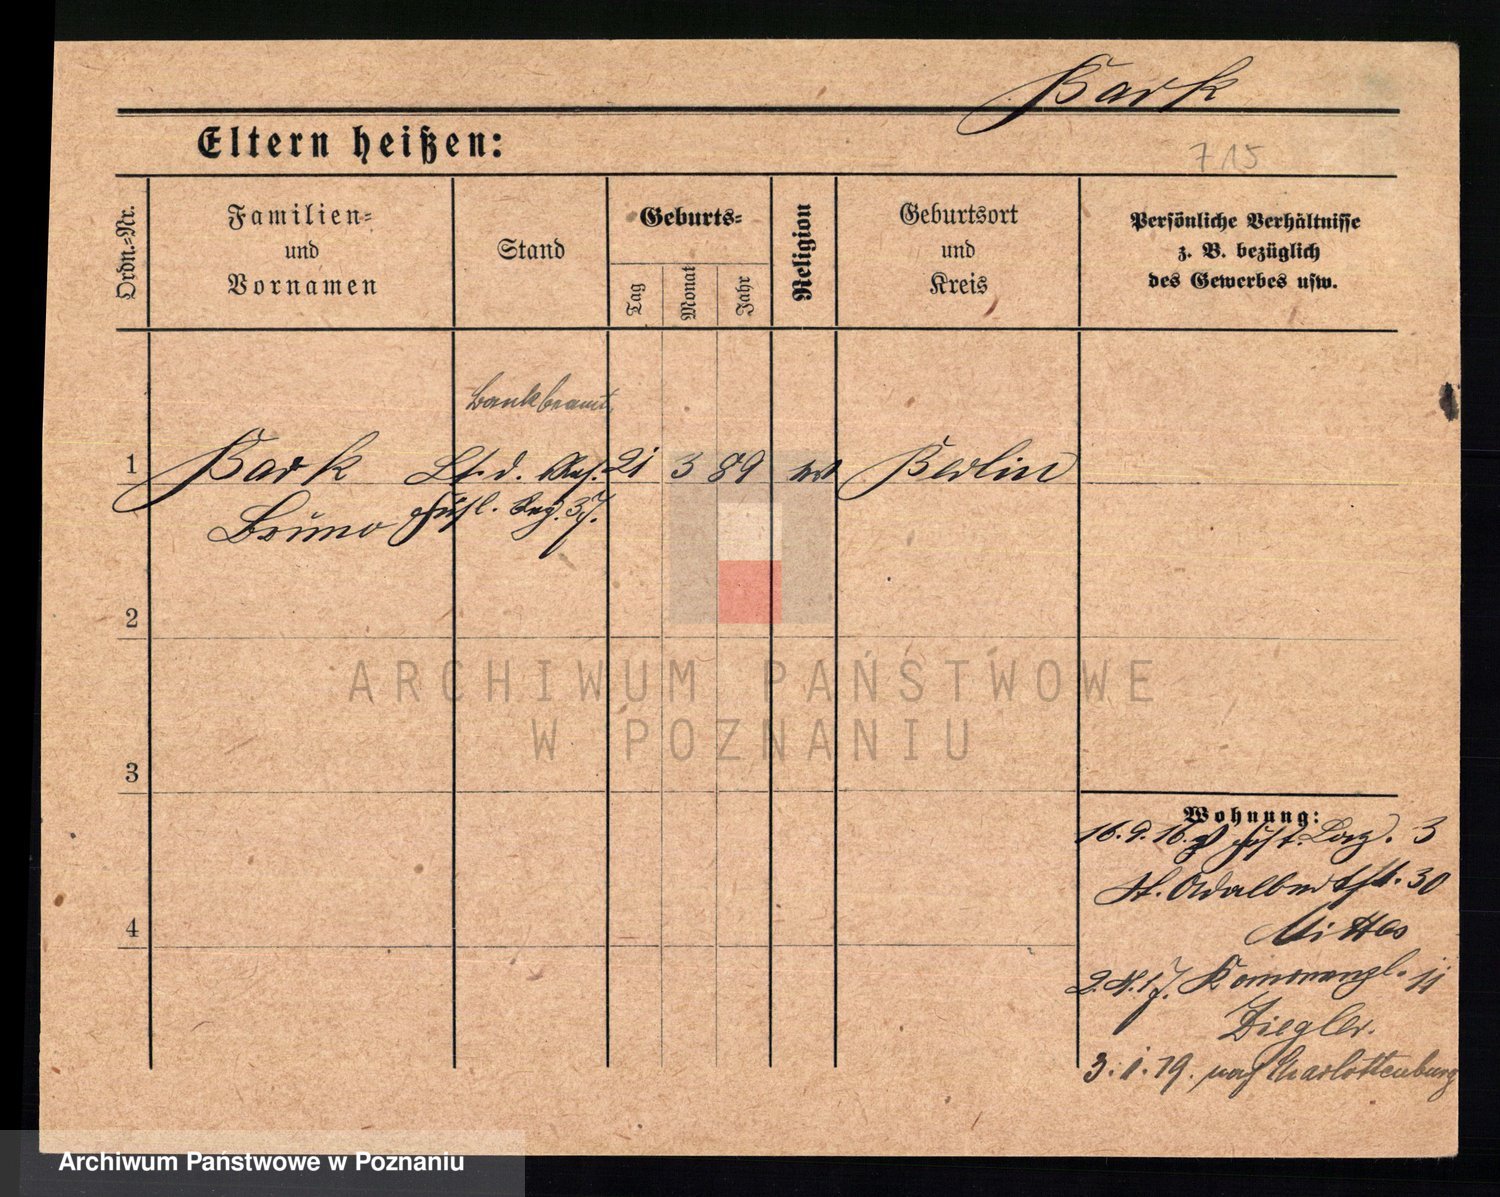 Bark
Eltern heißen:
715
Ordn.-Nr.
Familien-
und
Vornamen
Stand
Geburts-
Tag
Monat
Jahr
Religion
Geburtsort
und
Kreis
Persönliche Verhältnisse
z. B. bezüglich
des Gewerbes usw.
Bankbeamt.
1 Bark Lt. d. Res. 21 3 89 ev Berlin
Bruno Füsl. Reg. 37.
2
3
4
Wohnung:
16.9.16. 3
St. Adalbertstr. 30
2.4.17. 11
Ziegler.
3.1.19. nach Charlottenburg
ARCHIWUM PAŃSTWOWE
W POZNANIU
Archiwum Państwowe w Poznaniu